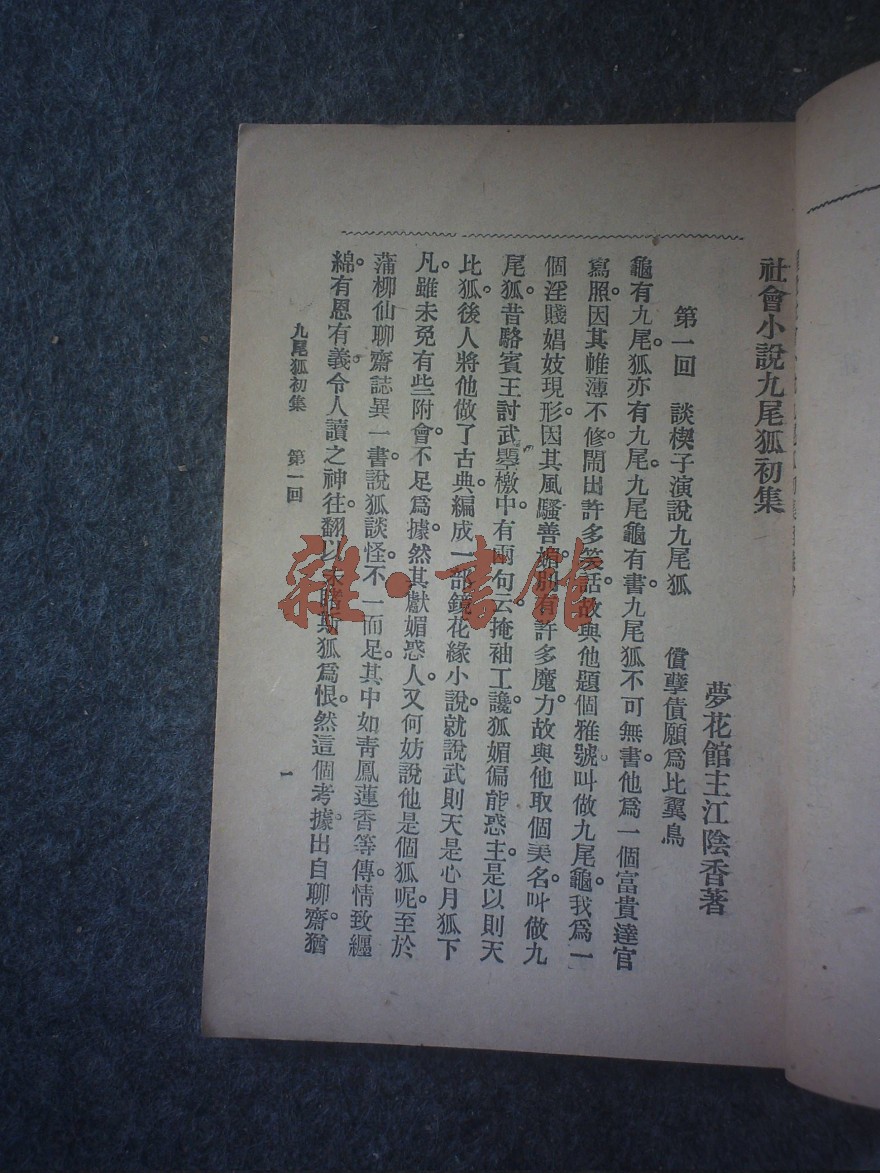 社會小說九尾狐初集
夢花館主江陰香著
第一回　談楔子演說九尾狐　償孽債願爲比翼鳥
龜有九尾。狐亦有九尾。九尾龜有書。九尾狐不可無書。他爲一個富貴達官
寫照。因其帷薄不修。鬧出許多笑話。故與他題個雅號。叫做九尾龜。我爲一
個淫賤娼妓現形。因其風騷善媚。別有許多魔力。故與他取個美名。叫做九
尾狐。昔駱賓王討武曌檄中。有兩句云。掩袖工讒。狐媚偏能惑主。是以則天
比狐。後人將他做了古典。編成一部鏡花緣小說。就說武則天是心月狐下
凡。雖未免有些附會。不足爲據。然其獻媚惑人。又何妨說他是個狐呢。至於
蒲柳仙聊齋誌異一書。說狐談怪。不一而足。其中如靑鳳蓮香等傳。情致纏
綿。有恩有義。令人讀之神往。翻以未睹斯狐爲恨。然這個考據。出自聊齋。猶
九尾狐初集　第一回
一
雜·書館